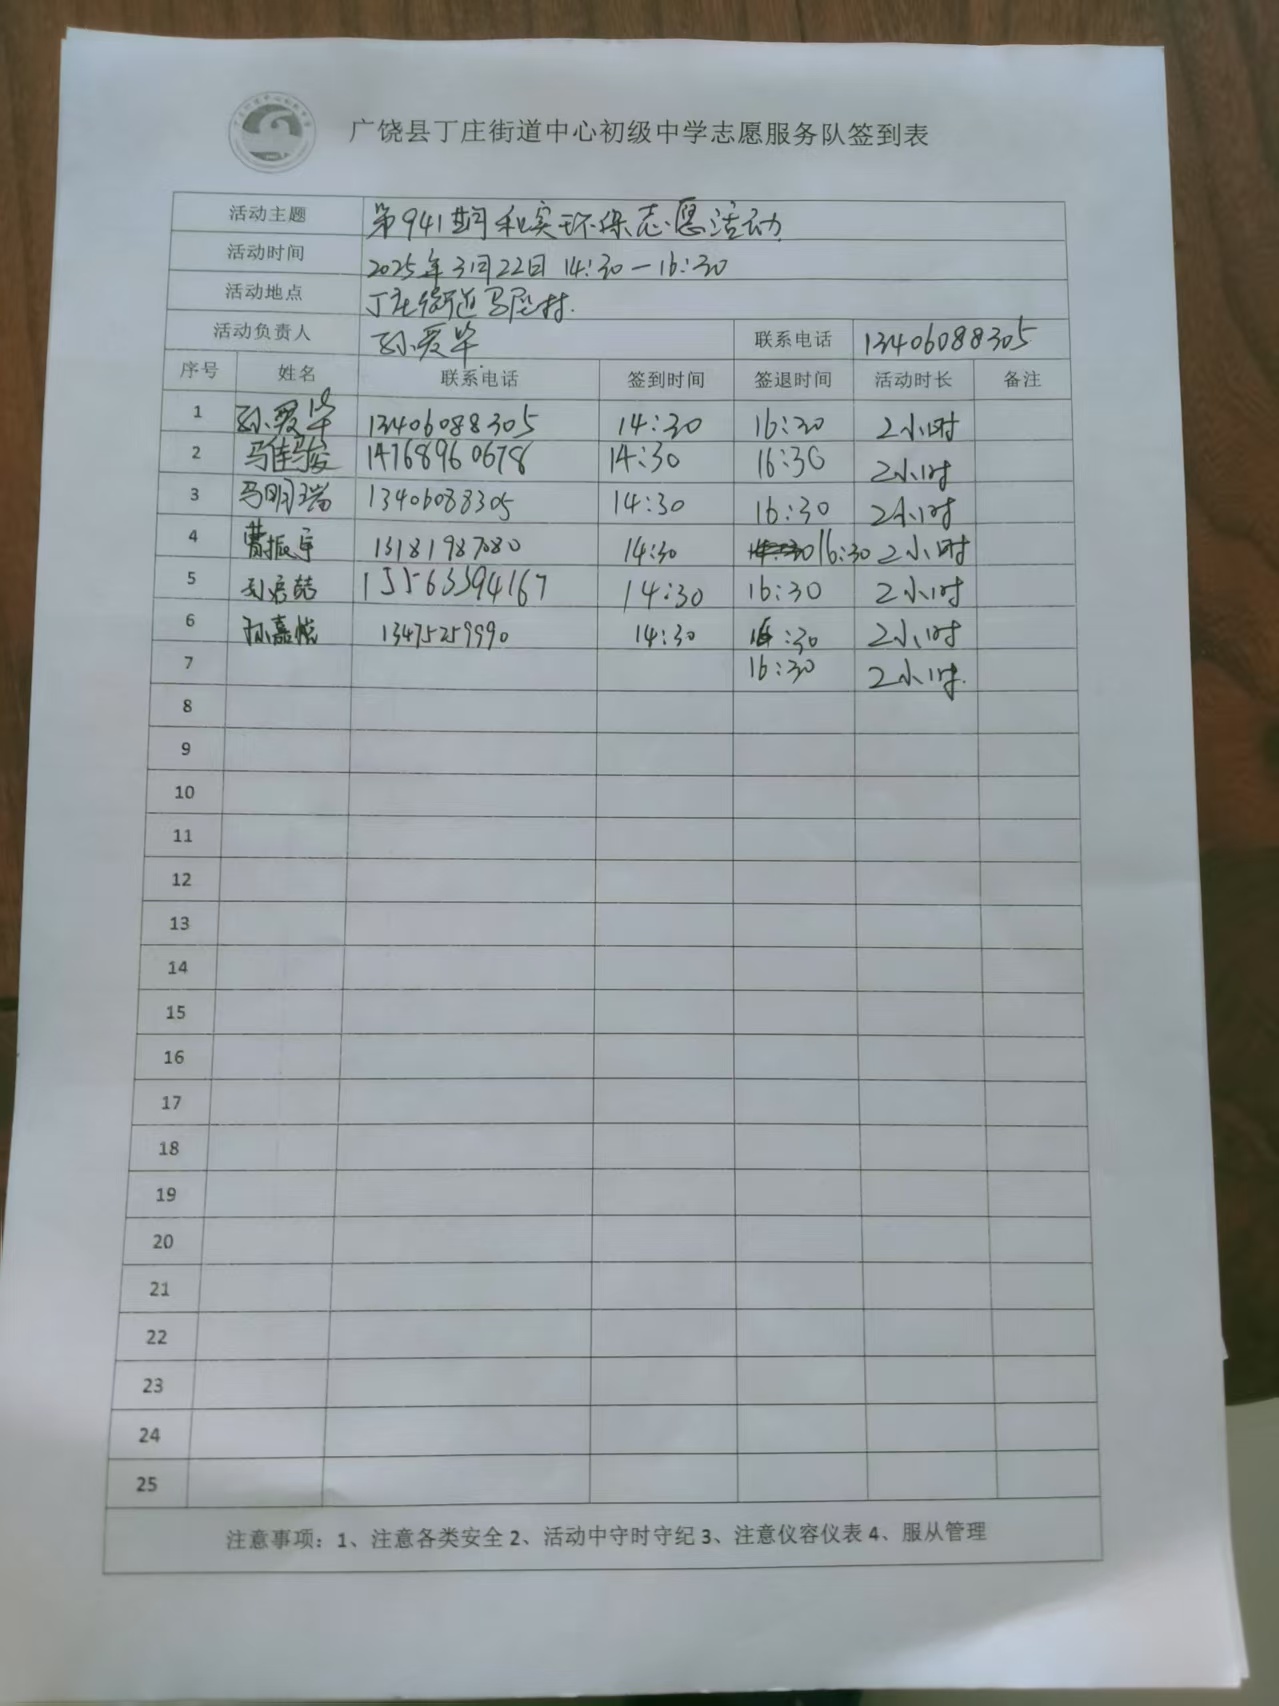 广饶县丁庄街道中心初级中学志愿服务队签到表
活动主题 第941期和实环保志愿活动
活动时间 2025年3月22日 14:30—16:30
活动地点 丁庄街道马屋村.
活动负责人 孙爱华 联系电话 13406088305
序号 姓名 联系电话 签到时间 签退时间 活动时长 备注
1 孙爱华 13406088305 14:30 16:30 2小时
2 马佳骏 14768960678 14:30 16:30 2小时
3 马明瑞 13406088305 14:30 16:30 2小时
4 曹振宇 13181987080 14:30 16:30 2小时
5 15563594167 14:30 16:30 2小时
6 孙嘉悦 13475259990 14:30 16:30 2小时
7 16:30 2小时.
8
9
10
11
12
13
14
15
16
17
18
19
20
21
22
23
24
25
注意事项：1、注意各类安全 2、活动中守时守纪 3、注意仪容仪表 4、服从管理